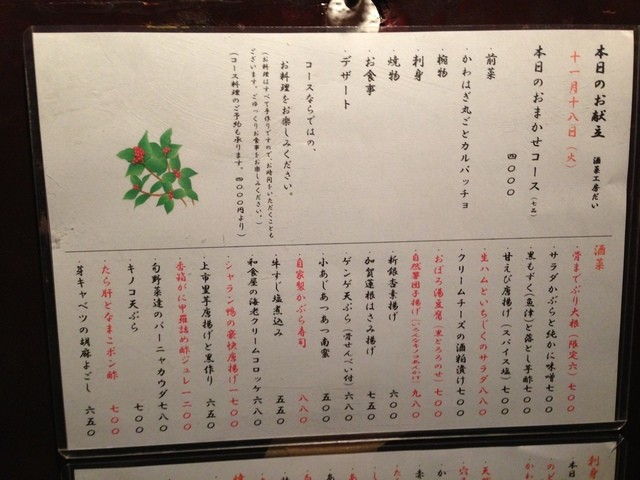 本日のお献立
酒菜工房だい
十一月十八日（火）
本日のおまかせコース（七品）
四〇〇〇
・前菜
・かわはぎ丸ごとカルパッチョ
・椀物
・刺身
・焼物
・お食事
・デザート
コースならではの、
お料理をお楽しみください。
（お料理はすべて手作りですので、お時間をいただくことも
ございます。ごゆっくりお食事をお楽しみください。）
（コース料理のご予約も承ります。四〇〇〇円より）
酒菜
・骨までぶり大根（限定六）七〇〇
・サラダかぶらと純かに味噌七〇〇
・黒もずく（魚津）と落とし芋酢七〇〇
・甘えび唐揚げ（スパイス塩）七〇〇
・生ハムといちじくのサラダ八八〇
・クリームチーズの酒粕漬け七〇〇
・おぼろ湯豆腐（黒とろろのせ）七〇〇
・自然薯団子揚げ 九八〇
・折銀杏素揚げ 六〇〇
・加賀蓮根はさみ揚げ 七五〇
・ゲンゲ天ぷら（骨せんべい付）六八〇
・小あじあつあつ南蛮 五〇〇
・自家製かぶら寿司 八八〇
・牛すじ塩煮込み 七〇〇
・和食屋の海老クリームコロッケ 六八〇
・シャラン鴨の豪快唐揚げ一七〇〇
・上市里芋唐揚げと黒作り 六五〇
・香箱がに甲羅詰め酢ジュレ一二〇〇
・旬野菜達のバーニャカウダ七八〇
・キノコ天ぷら 七〇〇
・たら肝となまこポン酢 七〇〇
・芽キャベツの胡麻よごし 六五〇
刺身
・本日